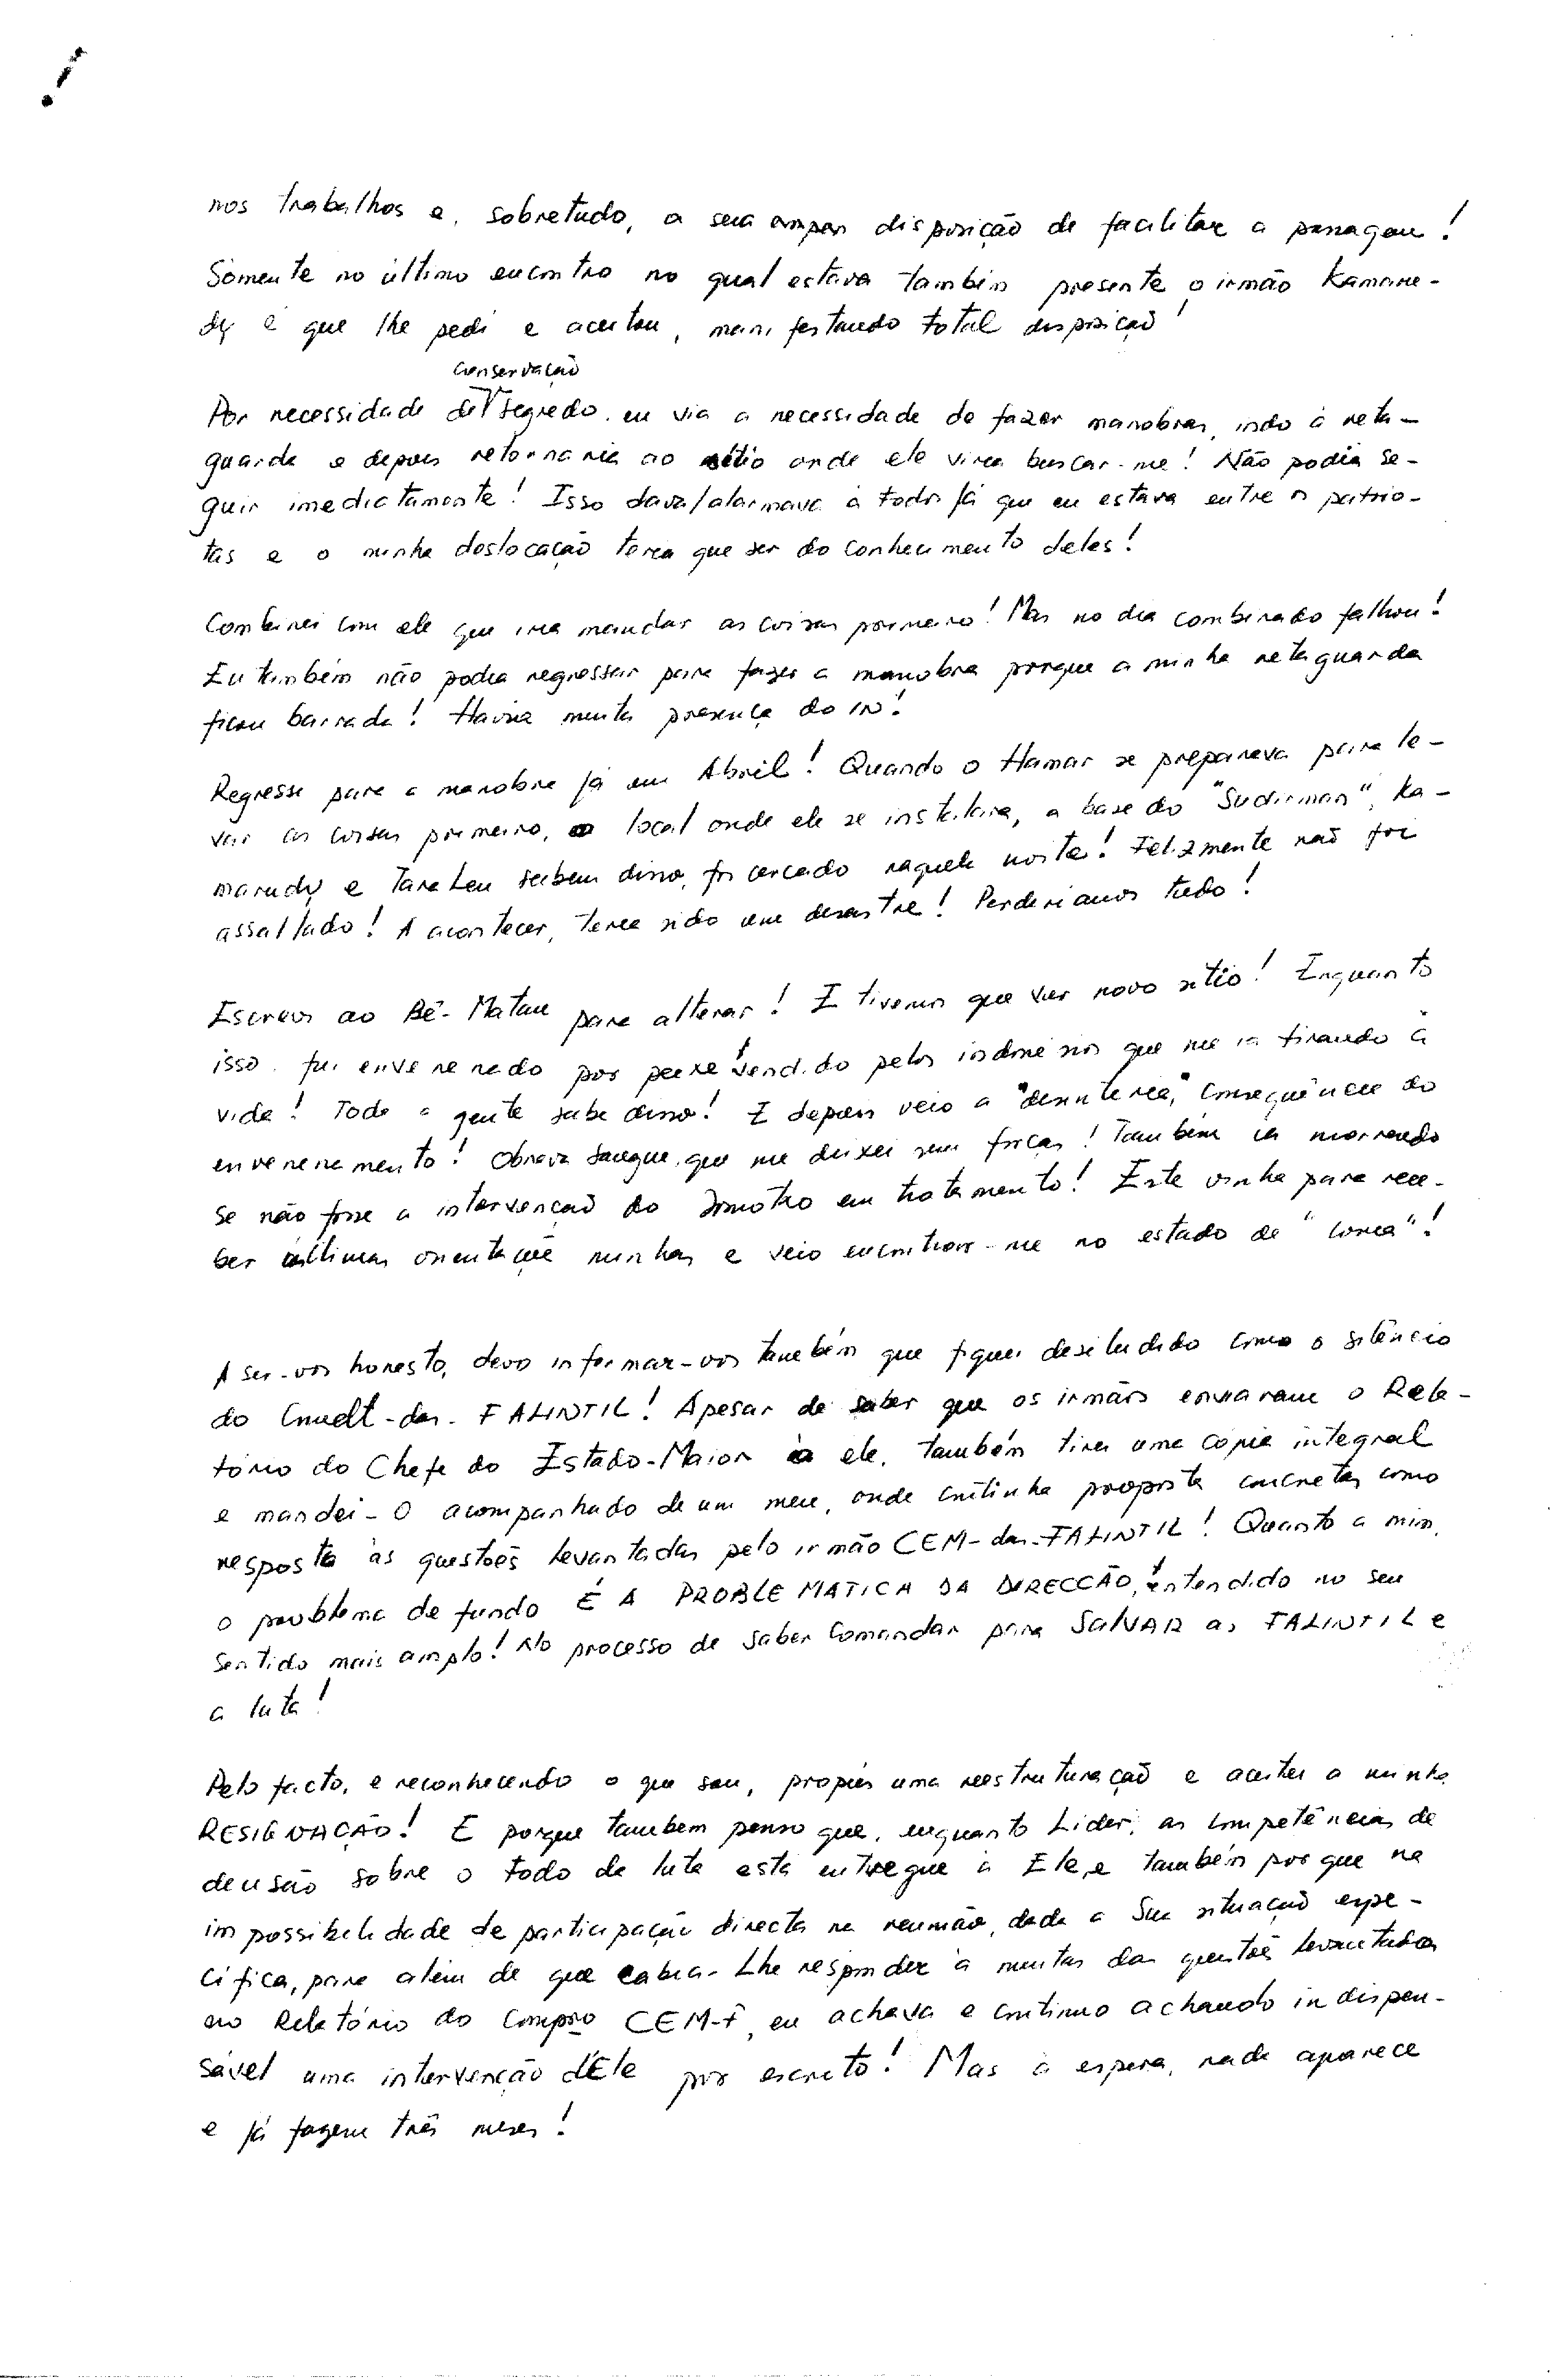 nos trabalhos e, sobretudo, a sua disposição de facilitar a passagem!
Sòmente no último encontro no qual estava também presente o irmão Kamane-
dy é que lhe pedi e aceitou, manifestando total disposição!
conservação
Por necessidade de segredo, eu via a necessidade de fazer manobras, indo à reta-
guarda e depois retornaria ao sítio onde ele viria buscar-me! Não podia se-
guir imediatamente! Isso dava/alarmava a todos já que eu estava entre os patrio-
tas e o minha deslocação teria que ser do conhecimento deles!
Combinei com ele que iria mandar as coisas primeiro! Mas no dia combinado falhou!
Eu também não podia regressar para fazer a manobra porque a minha retaguarda
ficou barrada! Havia muita presença do IN!
Regressei para a manobra já em Abril! Quando o Hamar se preparava para le-
var as coisas primeiro, o local onde ele se instalara, a base do "Sudirman", Ka-
marudy e Tara Leu sabem disso, foi cercado naquela noite! Felizmente não foi
assaltado! A acontecer, teria sido um desastre! Perderíamos tudo!
Escrevi ao Bê-Matan para alterar! E tivemos que ver novo sítio! Enquanto
isso, fui envenenado por peixe vendido pelos indonésios que me ia tirando à
vida! Toda a gente sabe disso! E depois veio a "desinteria", consequência do
envenenamento! Obrava sangue, que me deixei sem forças! Também ia morrendo
se não fosse a intervenção do em tratamento! Este vinha para rece-
ber últimas orientações minhas e veio encontrar-me no estado de "coma"!
A ser-vos honesto, devo informar-vos também que fiquei desiludido como o silêncio
do Cmdt-das-FALINTIL! Apesar de saber que os irmãos enviaram o Rela-
tório do Chefe do Estado-Maior a ele, também tirei uma cópia integral
e mandei-O acompanhado de um meu, onde continha proposta concretas como
resposta às questões levantadas pelo irmão CEM-das-FALINTIL! Quanto a mim,
o problema de fundo É A PROBLEMATICA DA DIRECCÃO, entendido no seu
sentido mais amplo! No processo de saber Comandar para SALVAR as FALINTIL e
a luta!
Pelo facto, e reconhecendo o que sou, propus uma reestruturação e aceitei a minha
RESIGNAÇÃO! E porque tambem penso que, enquanto Lider, as competências de
decisão sobre o todo da luta está entregue a Ele, e também porque na
impossibilidade de participação directa na reunião, dada a Sua situação espe-
cífica, para além de que cabia-Lhe responder à muitas das questões levantadas
no Relatório do CEM-F, eu achava e continuo achando indispen-
sável uma intervenção d'Ele por escrito! Mas à espera, nada aparece
e já fazem três meses!